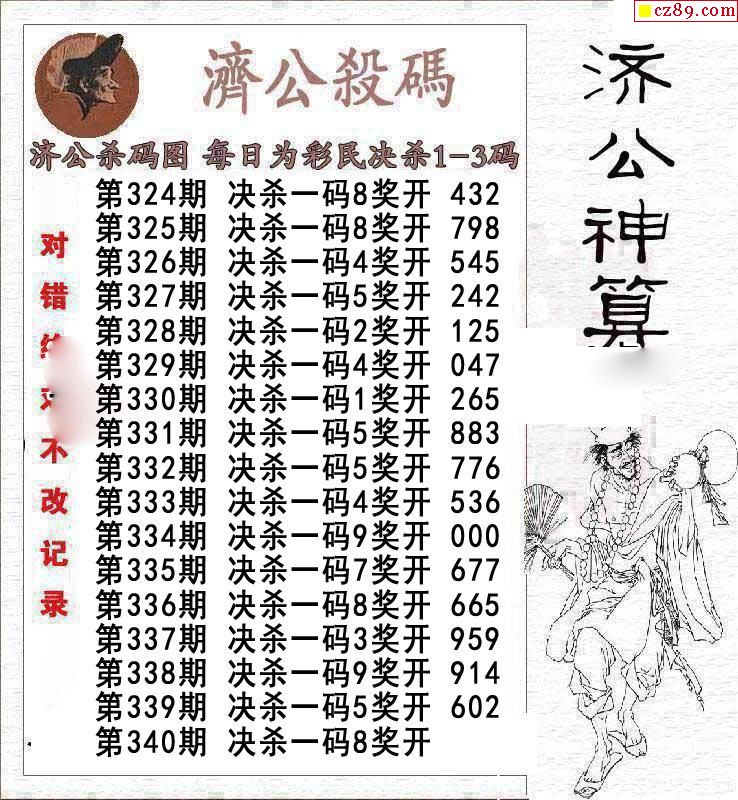 cz89.com
濟公殺碼
济公杀码图 每日为彩民决杀1-3码
第324期 决杀一码8奖开 432
第325期 决杀一码8奖开 798
第326期 决杀一码4奖开 545
第327期 决杀一码5奖开 242
第328期 决杀一码2奖开 125
第329期 决杀一码4奖开 047
第330期 决杀一码1奖开 265
第331期 决杀一码5奖开 883
第332期 决杀一码5奖开 776
第333期 决杀一码4奖开 536
第334期 决杀一码9奖开 000
第335期 决杀一码7奖开 677
第336期 决杀一码8奖开 665
第337期 决杀一码3奖开 959
第338期 决杀一码9奖开 914
第339期 决杀一码5奖开 602
第340期 决杀一码8奖开
对错不改记录
济公神算